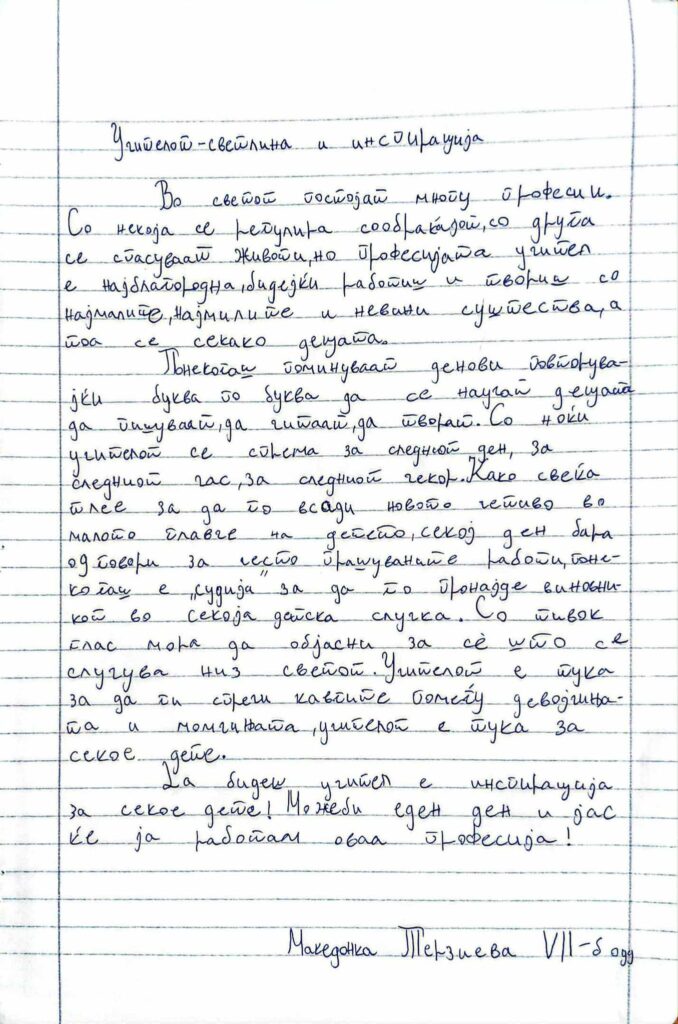 Учителот-светлина и инспирација
Во светот постојат многу професии.
Со некоја се регулира сообраќајот, со друга
се спасуваат животи, но професијата учител
е најблагородна, бидејки работиш и твориш со
најмалите, најмилите и невини суштества, а
тоа се секако децата.
Понекогаш поминуваат денови повторува-
јќи буква по буква да се научат децата
да пишуваат, да читаат, да творат. Со ноќи
учителот се спрема за следниот ден, за
следниот час, за следниот чекор. Како свеќа
тлее за да го всади новото четиво во
малото главче на детето, секој ден бара
одговори за често прашуваните работи, поне-
когаш е „судија" за да го пронајде виновни-
кот во секоја детска случка. Со тивок
глас мора да објасни за сѐ што се
случува низ светот. Учителот е тука
за да ги спречи кавгите помеѓу девојчиња-
та и момчињата, учителот е тука за
секое дете.
Да бидеш учител е инспирација
за секое дете! Можеби еден ден и јас
ќе ја работам оваа професија!
Македонка Терзиева VII-б одд